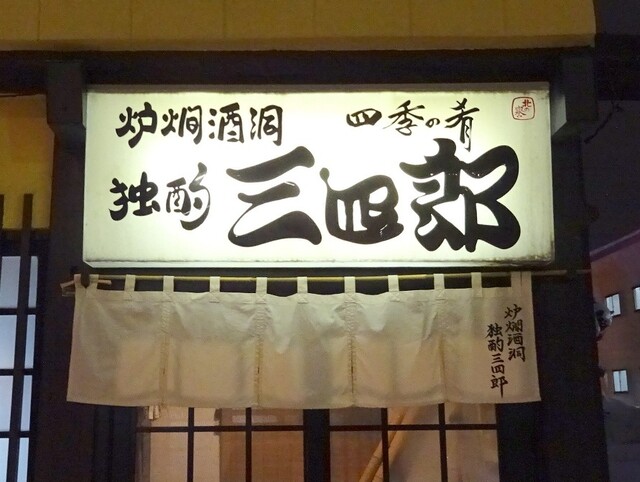 炉燗酒洞 四季の肴
独酌 三四郎
北の泉
炉燗酒洞
独酌三四郎